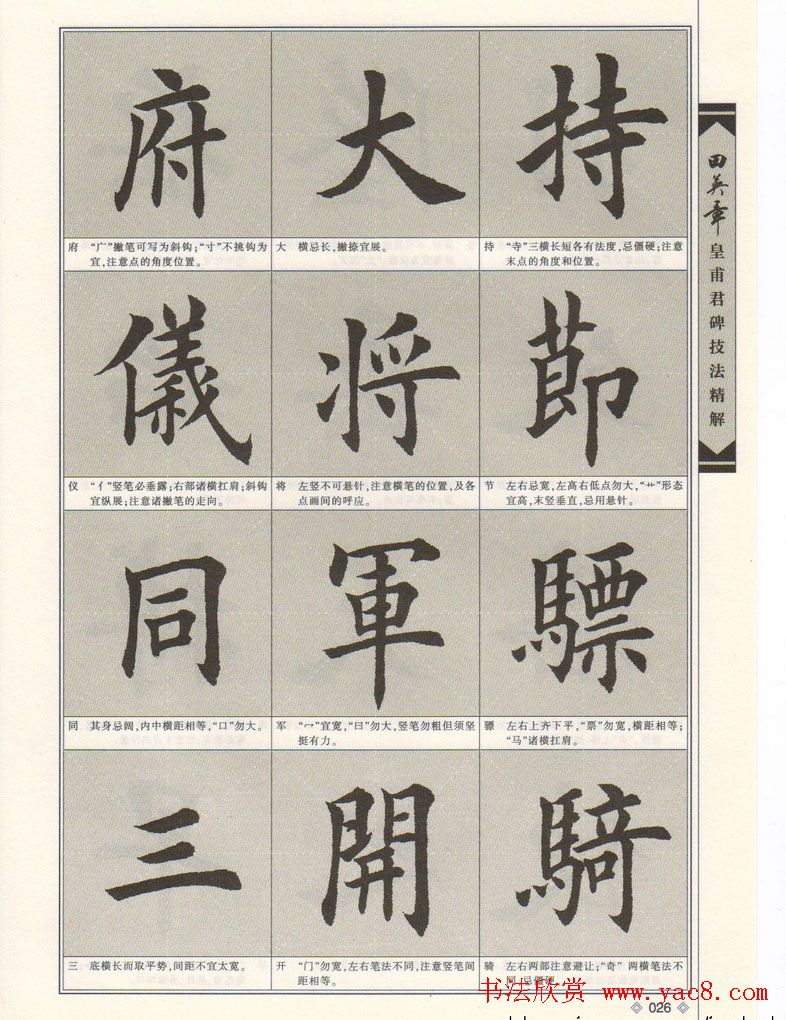 田英章
皇甫君碑技法精解
持
持 “寺”三横长短各有法度,忌僵硬;注意
末点的角度和位置。
莭
节 左右忌宽,左高右低点勿大,“艹”形态
宜高,末竖垂直,忌用悬针。
驃
骠 左右上齐下平,“票”勿宽,横距相等;
“马”诸横扛肩。
騎
骑 左右两部注意避让;“奇”两横笔法不
同,忌僵硬。
大
大 横忌长,撇捺宜展。
将
将 左竖不可悬针,注意横笔的位置,及各
点画间的呼应。
軍
军 “冖”宜宽,“曰”勿大,竖笔勿粗但须坚
挺有力。
開
开 “门”勿宽,左右笔法不同,注意竖笔间
距相等。
府
府 “广”撇笔可写为斜钩;“寸”不挑钩为
宜,注意点的角度位置。
儀
仪 “亻”竖笔必垂露;右部诸横扛肩;斜钩
宜纵展;注意诸撇笔的走向。
同
同 其身忌阔,内中横距相等,“口”勿大。
三
三 底横长而取平势,间距不宜太宽。
书法欣赏 www.yac8.com
026